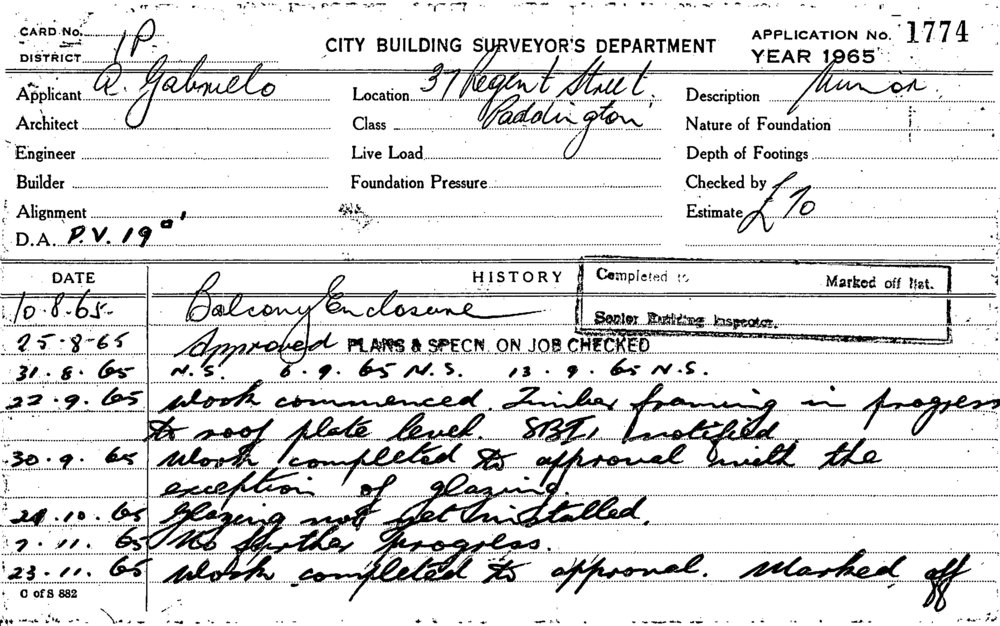 CARD No.
1P
DISTRICT
CITY BUILDING SURVEYOR'S DEPARTMENT
APPLICATION No. 1774
YEAR 1965
Applicant A Gabriello
Location 37 Regent Street
Description Minor
Architect
Class Paddington
Nature of Foundation
Engineer
Live Load
Depth of Footings
Builder
Foundation Pressure
Checked by
Alignment
Estimate £70
D.A. P.V. 19°'
DATE
HISTORY
Completed to
Marked off list.
Senior Building Inspector.
10.8.65. Balcony Enclosure
25.8.65 Approved PLANS & SPECN. ON JOB CHECKED
31.8.65 N.S. 6.9.65 N.S. 13.9.65 N.S.
22.9.65 Work commenced. Timber framing in progress
to roof plate level. SBI, notified
30.9.65 Work completed to approval with the
exception of glazing.
21.10.65 Glazing not yet installed.
7.11.65 No further progress.
23.11.65 Work completed to approval. Marked off
C of S 882